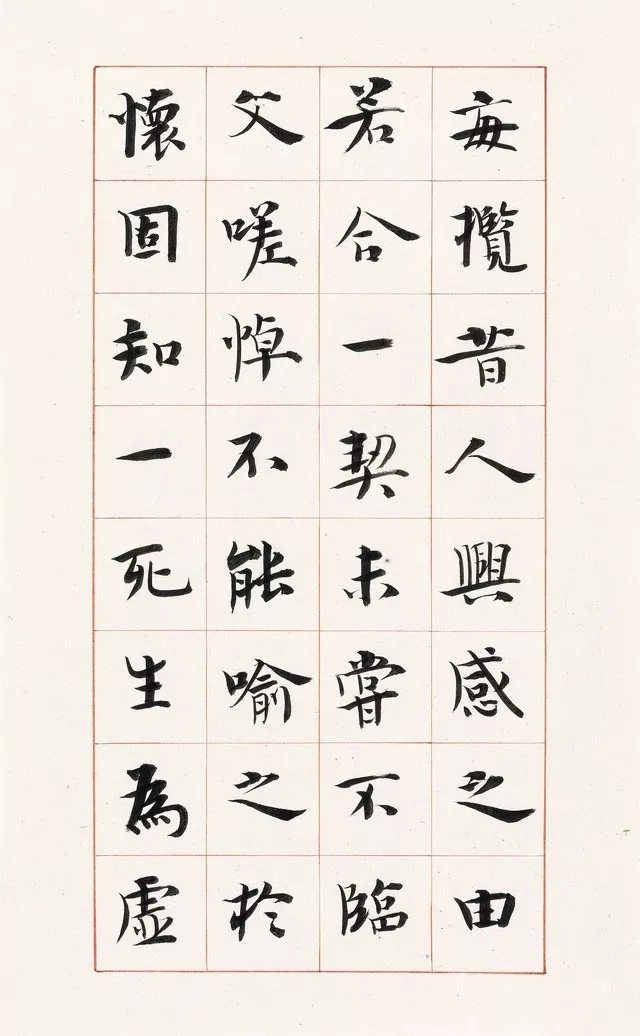 每攬昔人興感之由
若合一契未嘗不臨
文嗟悼不能喻之於
懷固知一死生為虛